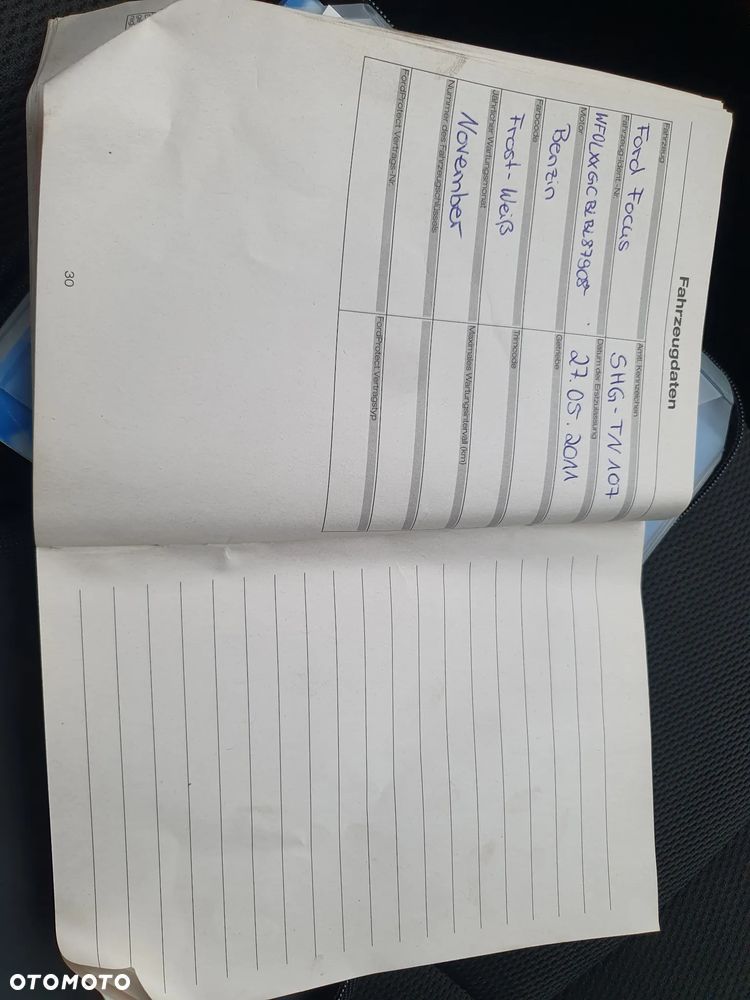 Fahrzeugdaten
Fahrzeug Amtl. Kennzeichen
Ford Focus SHG-TN 107
Fahrzeug-Ident.-Nr. Datum der Erstzulassung
27.05.2011
Motor Getriebe
Benzin
Farbcode Trimcode
Frost-Weiß
Jährlicher Wartungsmonat Maximales Wartungsintervall (km)
November
Nummer des Fahrzeugschlüssels
FordProtect Vertrags-Nr. FordProtect Vertragstyp
30
OTOMOTO